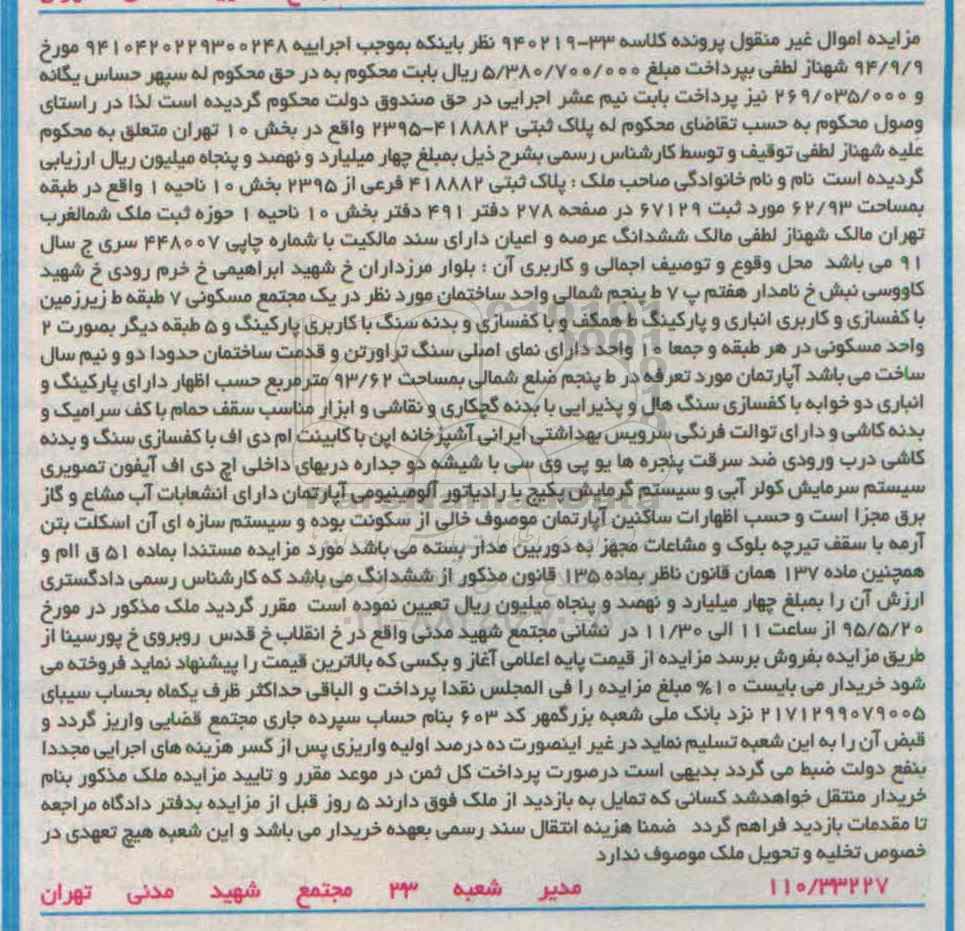 مزایده اموال غیر منقول پرونده کلاسه ۳۳-۹۴۰۲۱۹ نظر باینکه بموجب اجراییه ۹۴۱۰۴۲۰۲۲۹۳۰۰۲۴۸ مورخ
۹۴/۹/۹ شهناز لطفی بپرداخت مبلغ ۵/۳۸۰/۷۰۰/۰۰۰ ریال بابت محکوم به در حق محکوم له سپهر حساس یگانه
و ۲۶۹/۰۳۵/۰۰۰ نیز پرداخت بابت نیم عشر اجرایی در حق صندوق دولت محکوم گردیده است لذا در راستای
وصول محکوم به حسب تقاضای محکوم له پلاک ثبتی ۴۱۸۸۸۲-۲۳۹۵ واقع در بخش ۱۰ تهران متعلق به محکوم
علیه شهناز لطفی توقیف و توسط کارشناس رسمی بشرح ذیل بمبلغ چهار میلیارد و نهصد و پنجاه میلیون ریال ارزیابی
گردیده است نام و نام خانوادگی صاحب ملک : پلاک ثبتی ۴۱۸۸۸۲ فرعی از ۲۳۹۵ بخش ۱۰ ناحیه ۱ واقع در طبقه
بمساحت ۶۲/۹۳ مورد ثبت ۶۷۱۲۹ در صفحه ۲۷۸ دفتر ۴۹۱ دفتر بخش ۱۰ ناحیه ۱ حوزه ثبت ملک شمالغرب
تهران مالک شهناز لطفی مالک ششدانگ عرصه و اعیان دارای سند مالکیت با شماره چاپی ۴۴۸۰۰۷ سری ج سال
۹۱ می باشد محل وقوع و توصیف اجمالی و کاربری آن : بلوار مرزداران خ شهید ابراهیمی خ خرم رودی خ شهید
کاووسی نبش خ نامدار هفتم پ ۷ ط پنجم شمالی واحد ساختمان مورد نظر در یک مجتمع مسکونی ۷ طبقه ط زیرزمین
با کفسازی و کاربری انباری و پارکینگ ط همکف و با کفسازی و بدنه سنگ با کاربری پارکینگ و ۵ طبقه دیگر بصورت ۲
واحد مسکونی در هر طبقه و جمعا ۱۰ واحد دارای نمای اصلی سنگ تراورتن و قدمت ساختمان حدودا دو و نیم سال
ساخت می باشد آپارتمان مورد تعرفه در ط پنجم ضلع شمالی بمساحت ۹۳/۶۲ مترمربع حسب اظهار دارای پارکینگ و
انباری دو خوابه با کفسازی سنگ هال و پذیرایی با بدنه گچکاری و نقاشی و ابزار مناسب سقف حمام با کف سرامیک و
بدنه کاشی و دارای توالت فرنگی سرویس بهداشتی ایرانی آشپزخانه اپن با کابینت ام دی اف با کفسازی سنگ و بدنه
کاشی درب ورودی ضد سرقت پنجره ها یو پی وی سی با شیشه دو جداره دربهای داخلی اچ دی اف آیفون تصویری
سیستم سرمایش کولر آبی و سیستم گرمایش پکیج با رادیاتور آلومینیومی آپارتمان دارای انشعابات آب مشاع و گاز
برق مجزا است و حسب اظهارات ساکنین آپارتمان موصوف خالی از سکونت بوده و سیستم سازه ای آن اسکلت بتن
آرمه با سقف تیرچه بلوک و مشاعات مجهز به دوربین مدار بسته می باشد مورد مزایده مستندا بماده ۵۱ ق اام و
همچنین ماده ۱۳۷ همان قانون ناظر بماده ۱۳۵ قانون مذکور از ششدانگ می باشد که کارشناس رسمی دادگستری
ارزش آن را بمبلغ چهار میلیارد و نهصد و پنجاه میلیون ریال تعیین نموده است مقرر گردید ملک مذکور در مورخ
۹۵/۵/۲۰ از ساعت ۱۱ الی ۱۱/۳۰ در نشانی مجتمع شهید مدنی واقع در خ انقلاب خ قدس روبروی خ پورسینا از
طریق مزایده بفروش برسد مزایده از قیمت پایه اعلامی آغاز و بکسی که بالاترین قیمت را پیشنهاد نماید فروخته می
شود خریدار می بایست ۱۰% مبلغ مزایده را فی المجلس نقدا پرداخت و الباقی حداکثر ظرف یکماه بحساب سیبای
۲۱۷۱۲۹۹۰۷۹۰۰۵ نزد بانک ملی شعبه بزرگمهر کد ۶۰۳ بنام حساب سپرده جاری مجتمع قضایی واریز گردد و
قبض آن را به این شعبه تسلیم نماید در غیر اینصورت ده درصد اولیه واریزی پس از کسر هزینه های اجرایی مجددا
بنفع دولت ضبط می گردد بدیهی است درصورت پرداخت کل ثمن در موعد مقرر و تایید مزایده ملک مذکور بنام
خریدار منتقل خواهدشد کسانی که تمایل به بازدید از ملک فوق دارند ۵ روز قبل از مزایده بدفتر دادگاه مراجعه
تا مقدمات بازدید فراهم گردد ضمنا هزینه انتقال سند رسمی بعهده خریدار می باشد و این شعبه هیچ تعهدی در
خصوص تخلیه و تحویل ملک موصوف ندارد
۱۱۰/۳۳۲۲۷ مدیر شعبه ۲۳ مجتمع شهید مدنی تهران